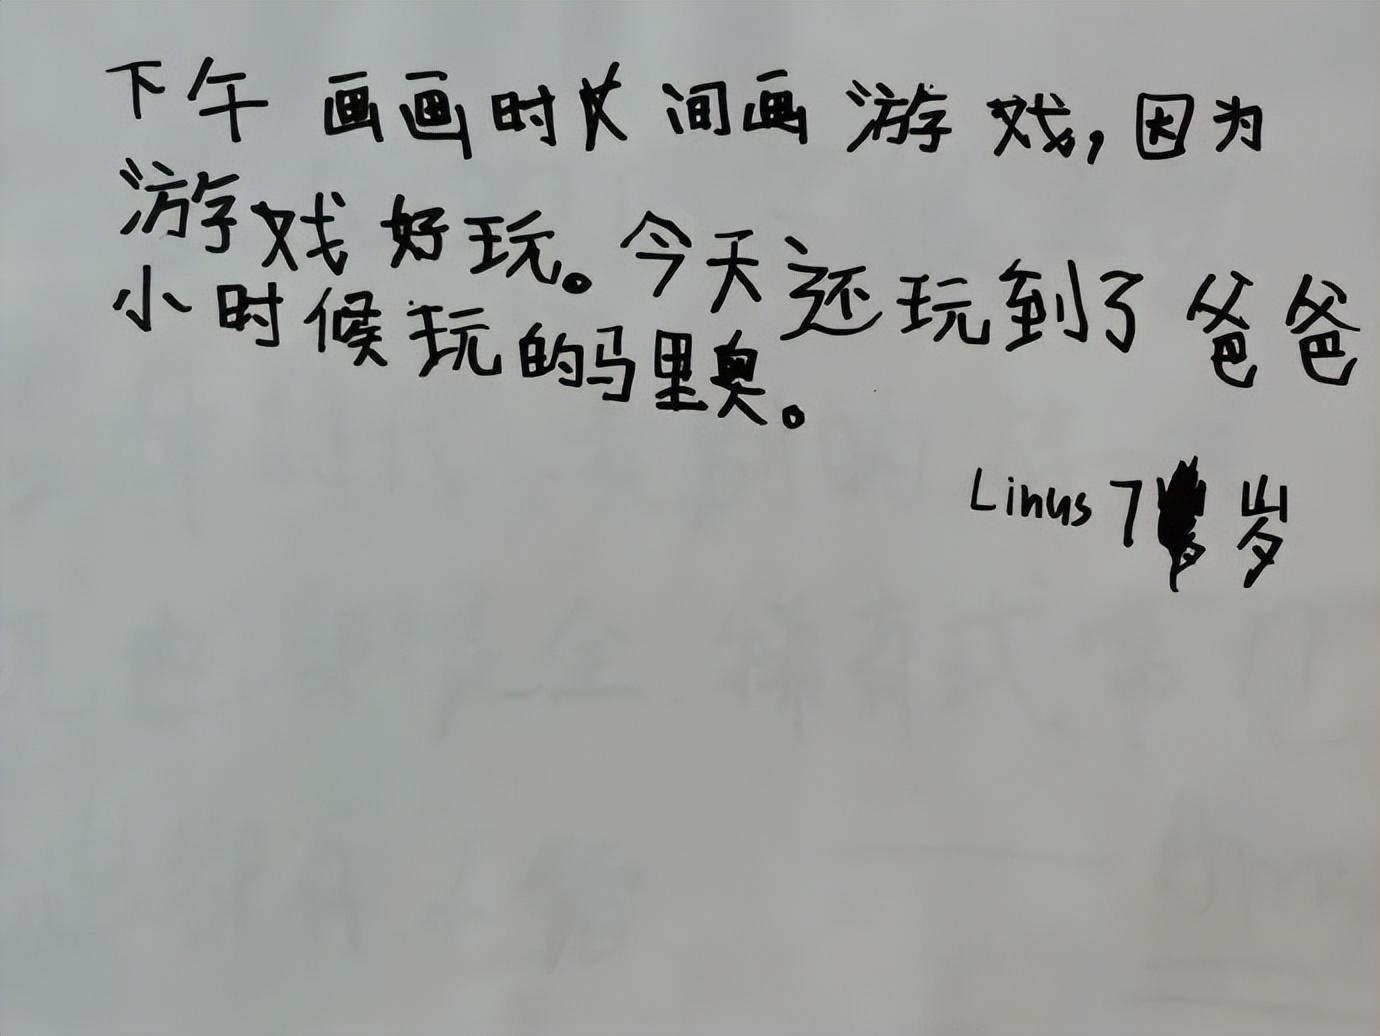 下午画画时间画游戏，因为
游戏好玩。今天还玩到了爸爸
小时候玩的马里奥。
Linus 7岁